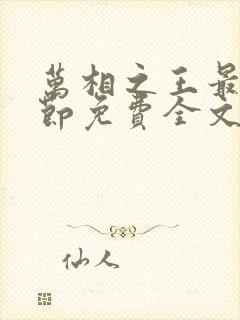 萬相之王最
節免費全文
仙人